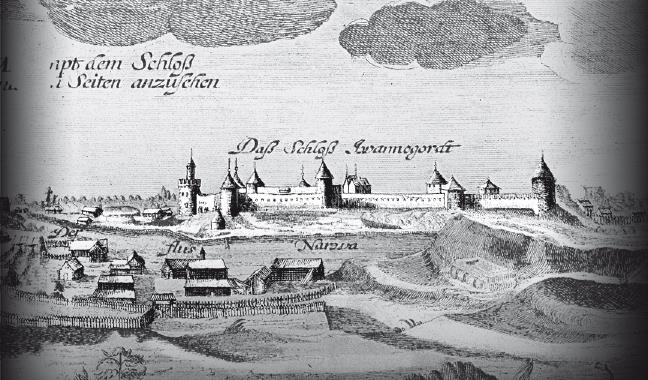 dem Schloß
Seiten anzuſehen
Daß Schloß Iwannogordt
Der
flus Narwa